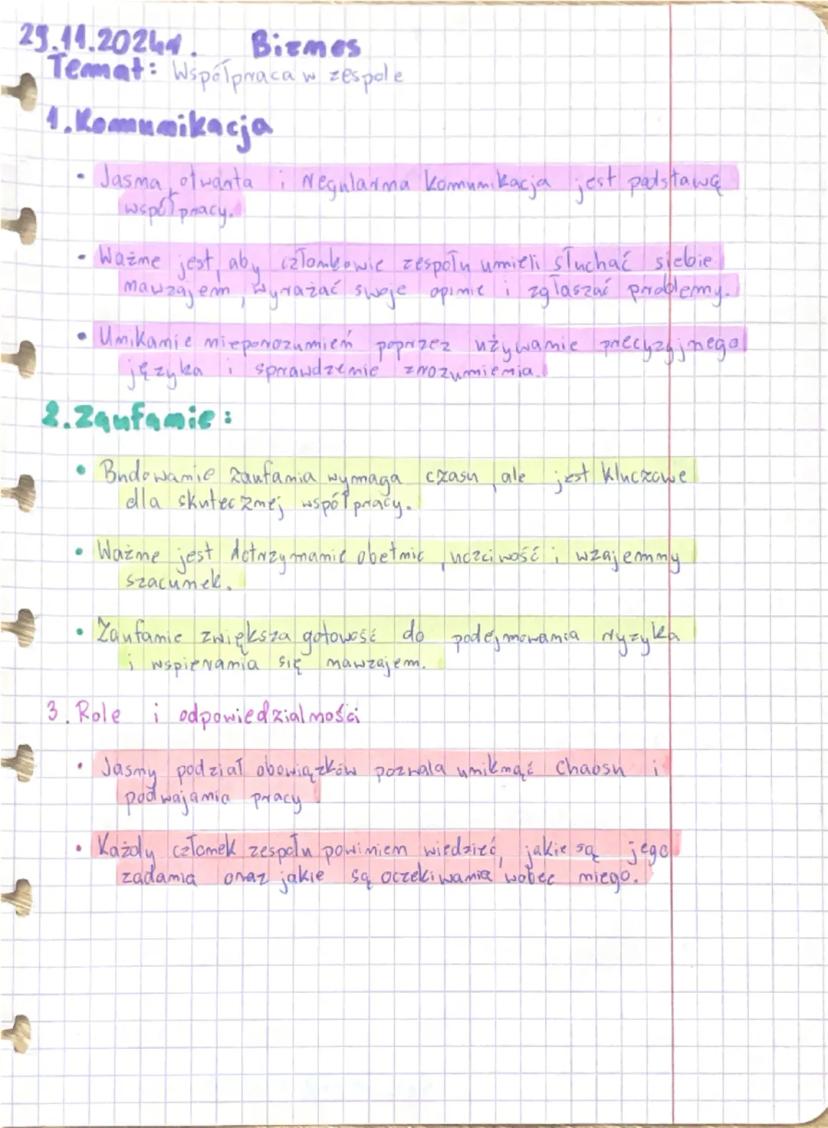 29.11.2024r. Biznes
Temat: Współpraca w zespole
1. Komunikacja
• Jasna, otwarta i regularna komunikacja jest podstawą
współpracy.
• Ważne jest, aby członkowie zespołu umieli słuchać siebie
nawzajem, wyrażać swoje opinie i zgłaszać problemy.
• Unikanie nieporozumień poprzez używanie precyzyjnego
języka i sprawdzenie zrozumienia.
2. Zaufanie:
• Budowanie zaufania wymaga czasu, ale jest kluczowe
dla skutecznej współpracy.
• Ważne jest dotrzymanie obietnic, uczciwość i wzajemny
szacunek.
• Zaufanie zwiększa gotowość do podejmowania ryzyka
i wspierania się nawzajem.
3. Role i odpowiedzialności
• Jasny podział obowiązków pozwala uniknąć chaosu i
podwajania pracy
• Każdy członek zespołu powinien wiedzieć, jakie są jego
zadania oraz jakie są oczekiwania wobec niego.